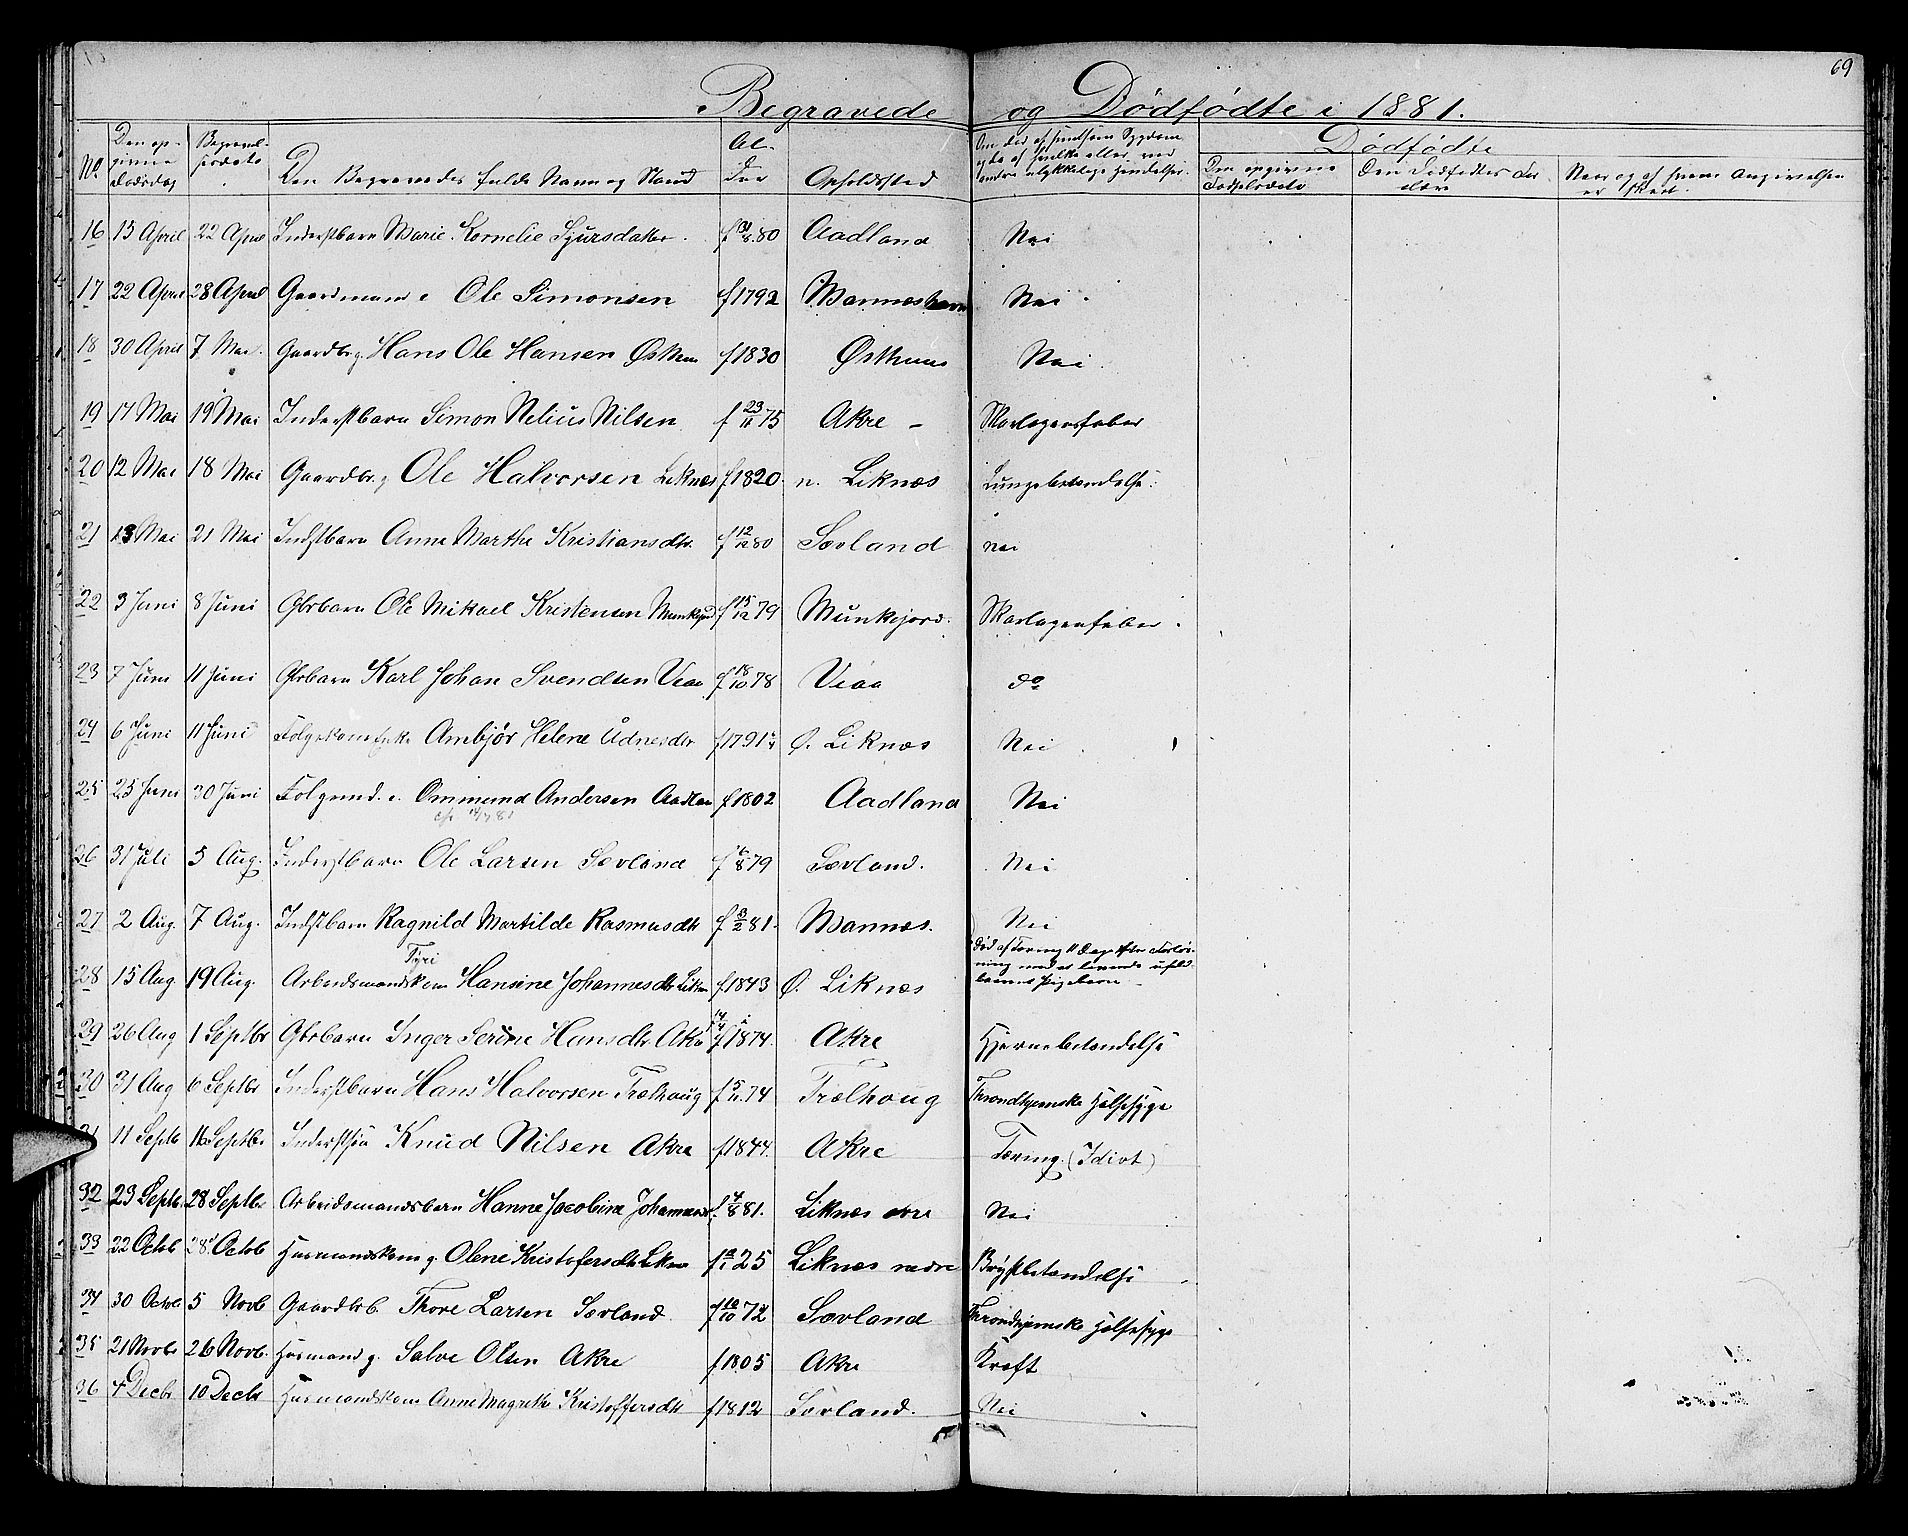 69
Begravede og Dødfødte i 1881.
No. Den opgivne Dødsdag Begravelsesdato Den Begravedes fulde Navn og Stand Alder Opholdssted Om død af smitsom Sygdom og da af hvilke eller ved andre ulykkelige Hændelser. Dødfødte
Den opgivne Fødselsdato Den Dødfødtes Forældre Naar og af hvem Angivelsen er skeet.
16 15 April 22 April Inderstbarn Marie Kornelie Sjursdatter. f 80 Aadland Nei
17 22 April 28 April Gaardmand e Ole Simonsen f 1792 Mannes Nei
18 30 April 7 Mai Gaardbr g. Hans Ole Hansen Østhuus f 1830 Østhuus Nei.
19 17 Mai 19 Mai Inderstbarn Simon Nelius Nilsen f 23/11 75 Akre - Skarlagensfeber
20 12 Mai 18 Mai Gaardbr. g Ole Halvorsen Liknæs f 1820. n. Liknæs Lungebetændelse.
21 13 Mai 21 Mai Indstbarn Anne Marthe Kristiansdtr. f 12/12 80 Sævland nei
22 3 Juni 8 Juni Gbrbarn Ole Mikael Kristensen Munkejord f 15/12 79 Munkejord. Skarlagenfeber.
23 7 Juni 11 Juni Gbrbarn Karl Johan Svendsen Veaa f 18/10 78 Veaa do
24 6 Juni 11 Juni Folgekone Anbjør Helene Ådnesdtr f 1791 Ø. Liknæs Nei
25 25 Juni 30 Juni Folgmd. e. Ommund Andersen Aadlan f 1802 Aadland Nei
26 31 Juli 5 Aug. Inderstbarn Ole Larsen Sævland f 6/8 79 Sævland. Nei
27 2 Aug. 7 Aug. Indstbarn Ragnild Martilde Rasmusdtr f 3/2 81. Mannes. Nei
28 15 Aug 19 Aug. Arbeidsmandskone Tyri Hansine Johannesdtr Liknæs f 1843 Ø. Liknæs Død af Tæring 11 Dage efter Forløsning med et levende ufuldbaaret Pigebarn
29 26 Aug 1 Septbr Gbrbarn Inger Serine Hansdtr Akre f 1874. Akre Hjernebetændelse
30 31 Aug 6 Septbr Inderstbarn Hans Halvorsen Trælhaug f 74 Trælhoug Throndhjemske Halssyge
31 11 Septb 16 Septbr. Inderstsøn Knud Nilsen Akre f 1844. Akre Tæring. (Idiot)
32 23 Septbr. 28 Septbr Arbeidsmandsbarn Hanne Jacobine Johannesd f 4/8 81. Liknæs øvre Nei
33 22 Octob 28 Octob Husmandskone g. Olene Kristofersdtr Liknæs f 25 Liknæs nedre Brystbetændelse
34 30 Octob 5 Novb Gaardbrb Thore Larsen Sævland. f 10/10 72 Sævland Throndhjemske Halssyge
35 21 Novbr 26 Novb. Husmand g. Salve Olsen Akre f 1805 Akre Kræft
36 4 Decbr 10 Decbr Husmandskone Anne Magrethe Kristoffersdtr f 1812 Sævland. Nei